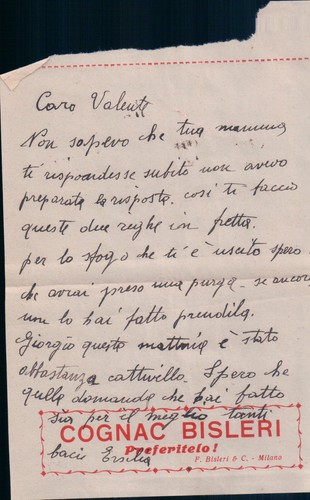 Caro Valente
Non sapevo che tua mamma
ti rispondesse subito non avevo
preparata la risposta. così ti faccio
queste due righe in fretta.
per lo sfogo che ti è uscito spero
che avrai preso una purga - se ancora
non lo hai fatto prendila.
Giorgio questa mattina è stato
abbastanza cattivello. Spero che
quella domanda che hai fatto
sia per il meglio tanti
COGNAC BISLERI
Preferitelo!
F. Bisleri & C. - Milano
bacii Ersilia